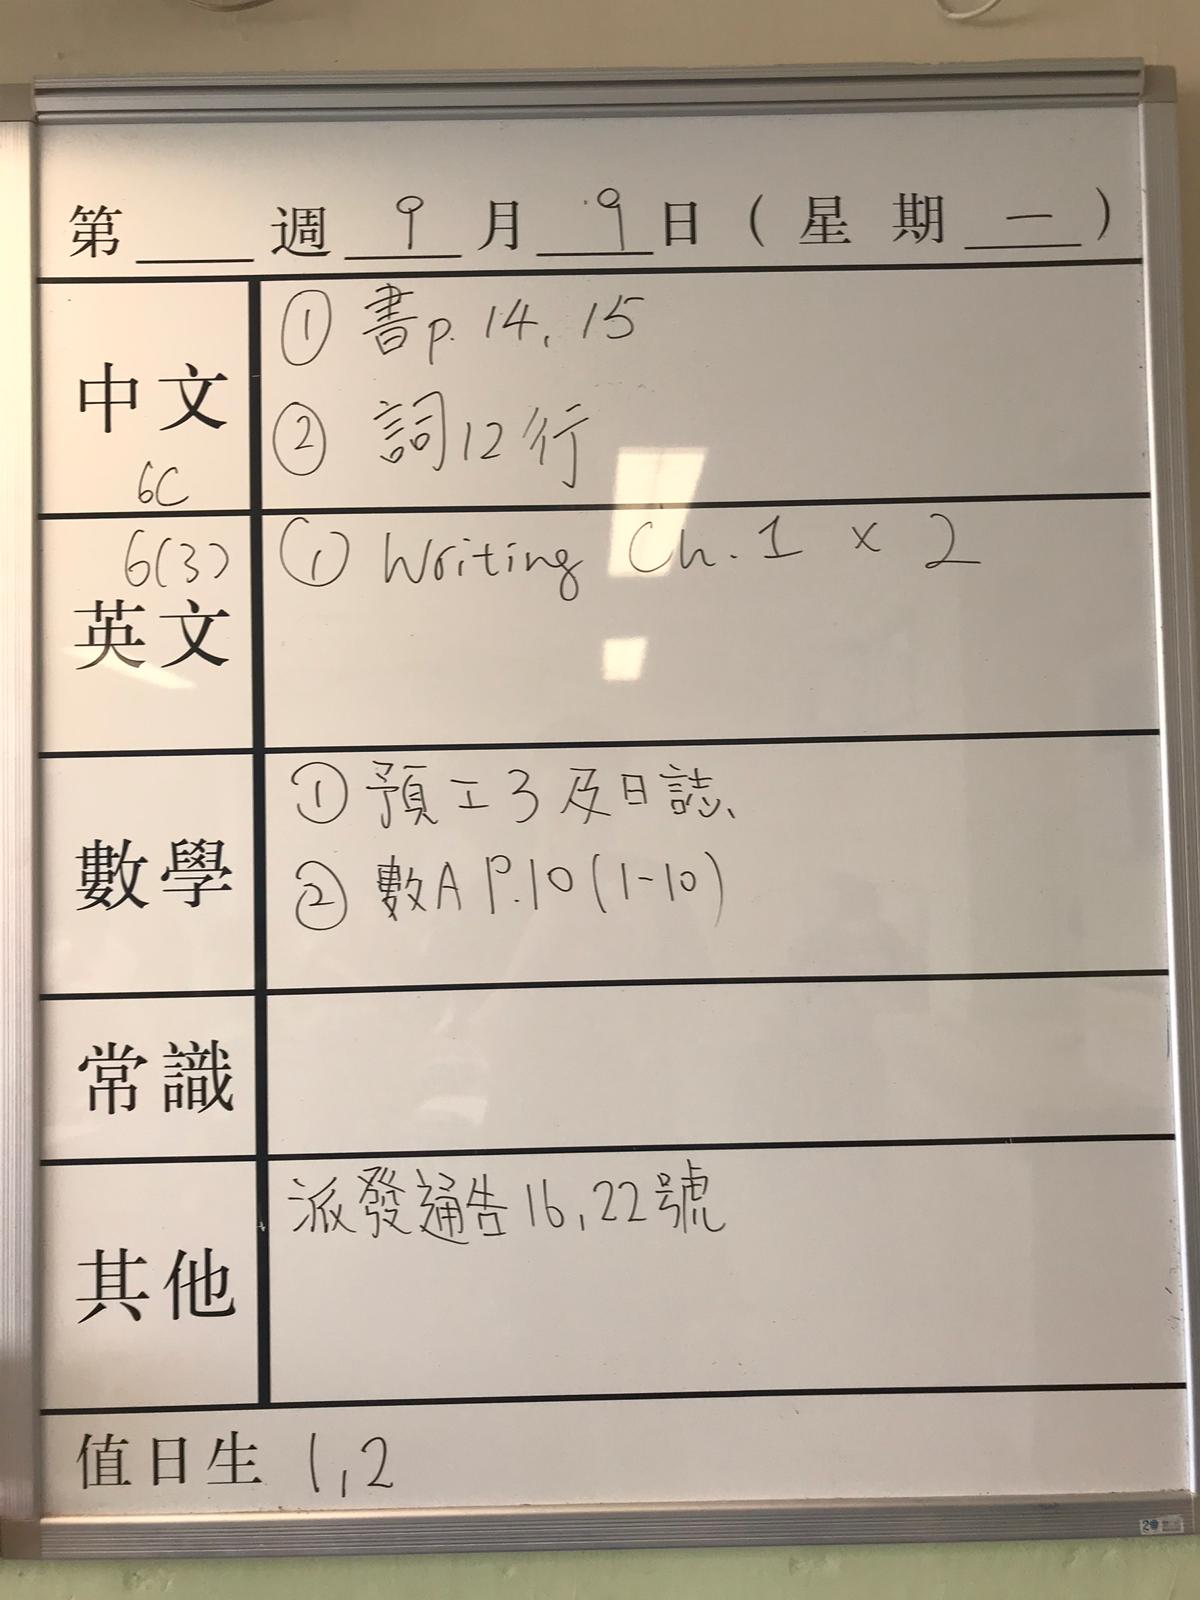 第 週 9 月 9 日 ( 星 期 一 )
中文
6C
① 書p. 14, 15
② 詞12行
6(3)
英文
① Writing Ch. 1 × 2
數學
① 預工3及日誌、
② 數A P.10 (1-10)
常識
其他
派發通告16, 22號
值日生 1, 2